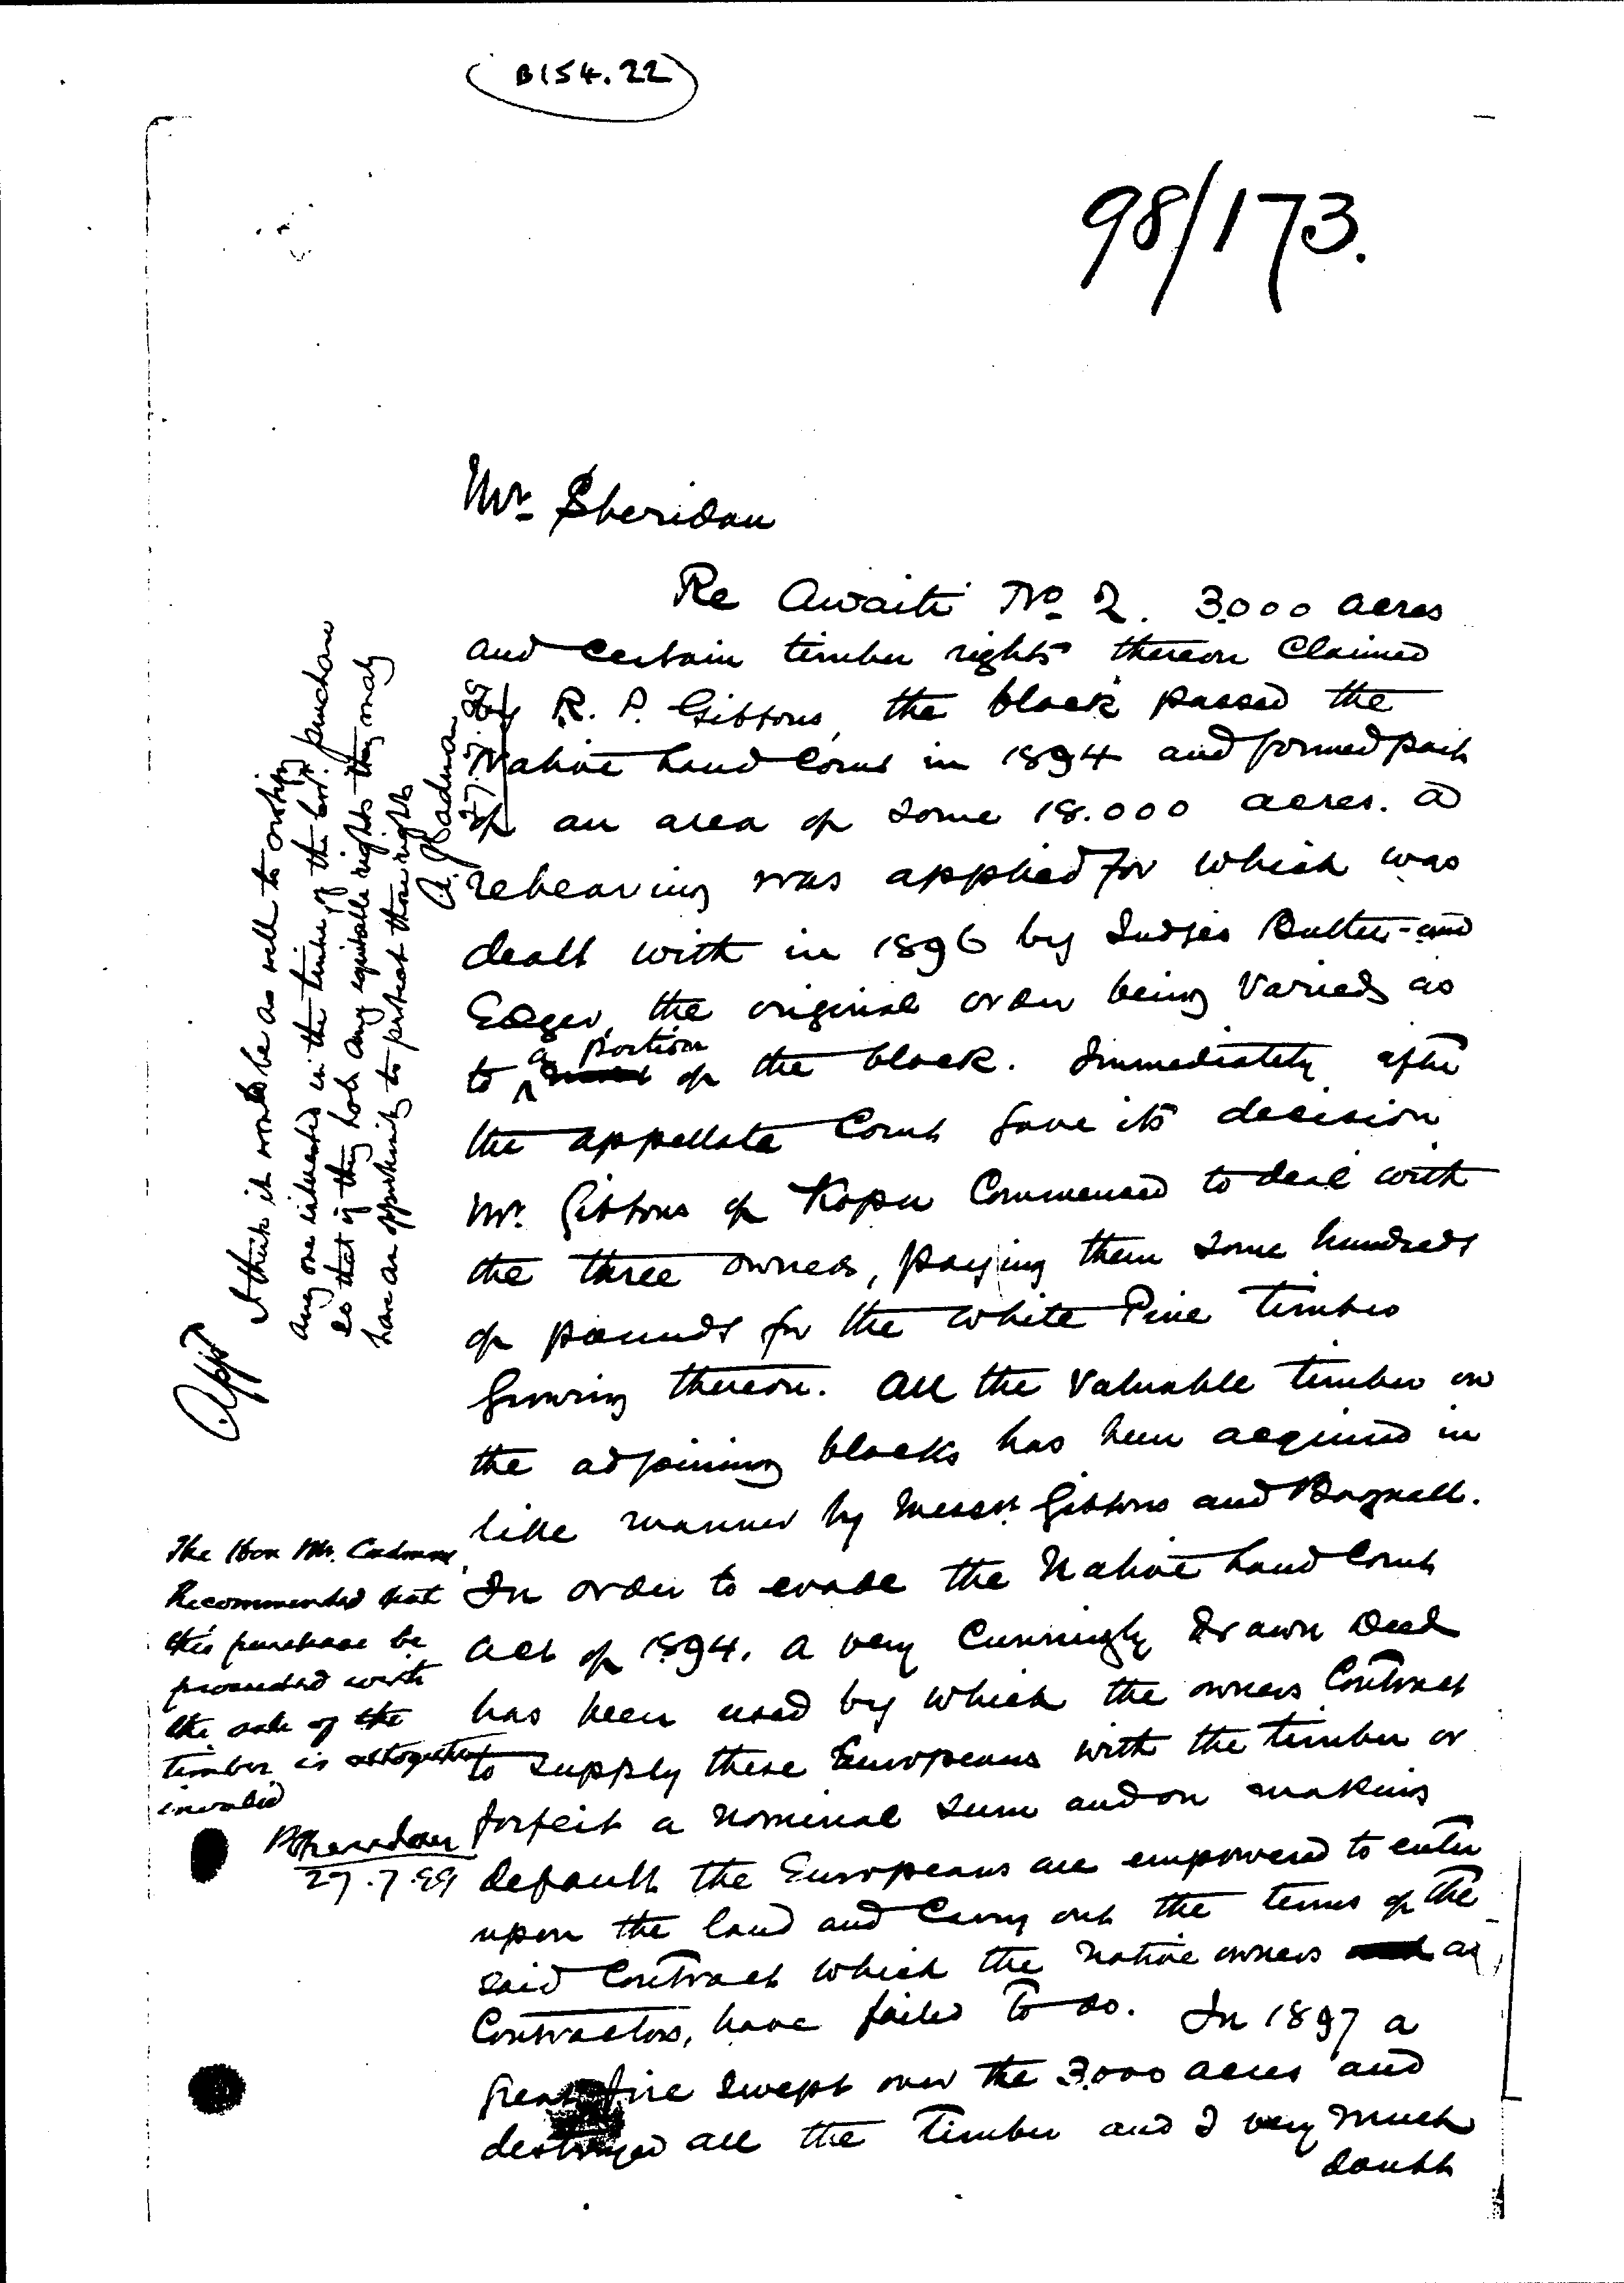 B154.22
98/173.
Mr. Sheridan
Re Awaiti No. 2. 3000 acres
and certain timber rights thereon claimed
by R. P. Gibbons, the block passed the
Native Land Court in 1894 and formed part
of an area of some 18.000 acres. a
rehearing was applied for which was
dealt with in 1896 by Judges Butler and
Edger, the original order being varied as
to a portion of the block. Immediately after
the appellate Court gave its decision
Mr. Gibbons of Kopu commenced to deal with
the three owners, paying them some hundreds
of pounds for the White Pine timber
growing thereon. All the valuable timber on
the adjoining blocks has been acquired in
like manner by Messrs Gibbons and Bagnall.
In order to evade the Native Land Court
Act of 1894. a very cunningly drawn Deed
has been used by which the owners contract
to supply these Europeans with the timber or
forfeit a nominal sum and on making
default the Europeans are empowered to enter
upon the land and carry out the terms of the
said contract which the native owners as
Contractors, have failed to do. In 1897 a
great fire swept over the 3.000 acres and
destroyed all the timber and I very much
doubt
The Hon Mr. Cadman,
Recommended that
this purchase be
proceeded with
the sale of the
timber is altogether
invalid
PSheridan
27.7.99
Appd
I think it would be as well to notify
any one interested in the timber of the purchase
so that if they hold any equitable rights they may
have an opportunity to protect those rights
A. J. Cadman
27.7.99